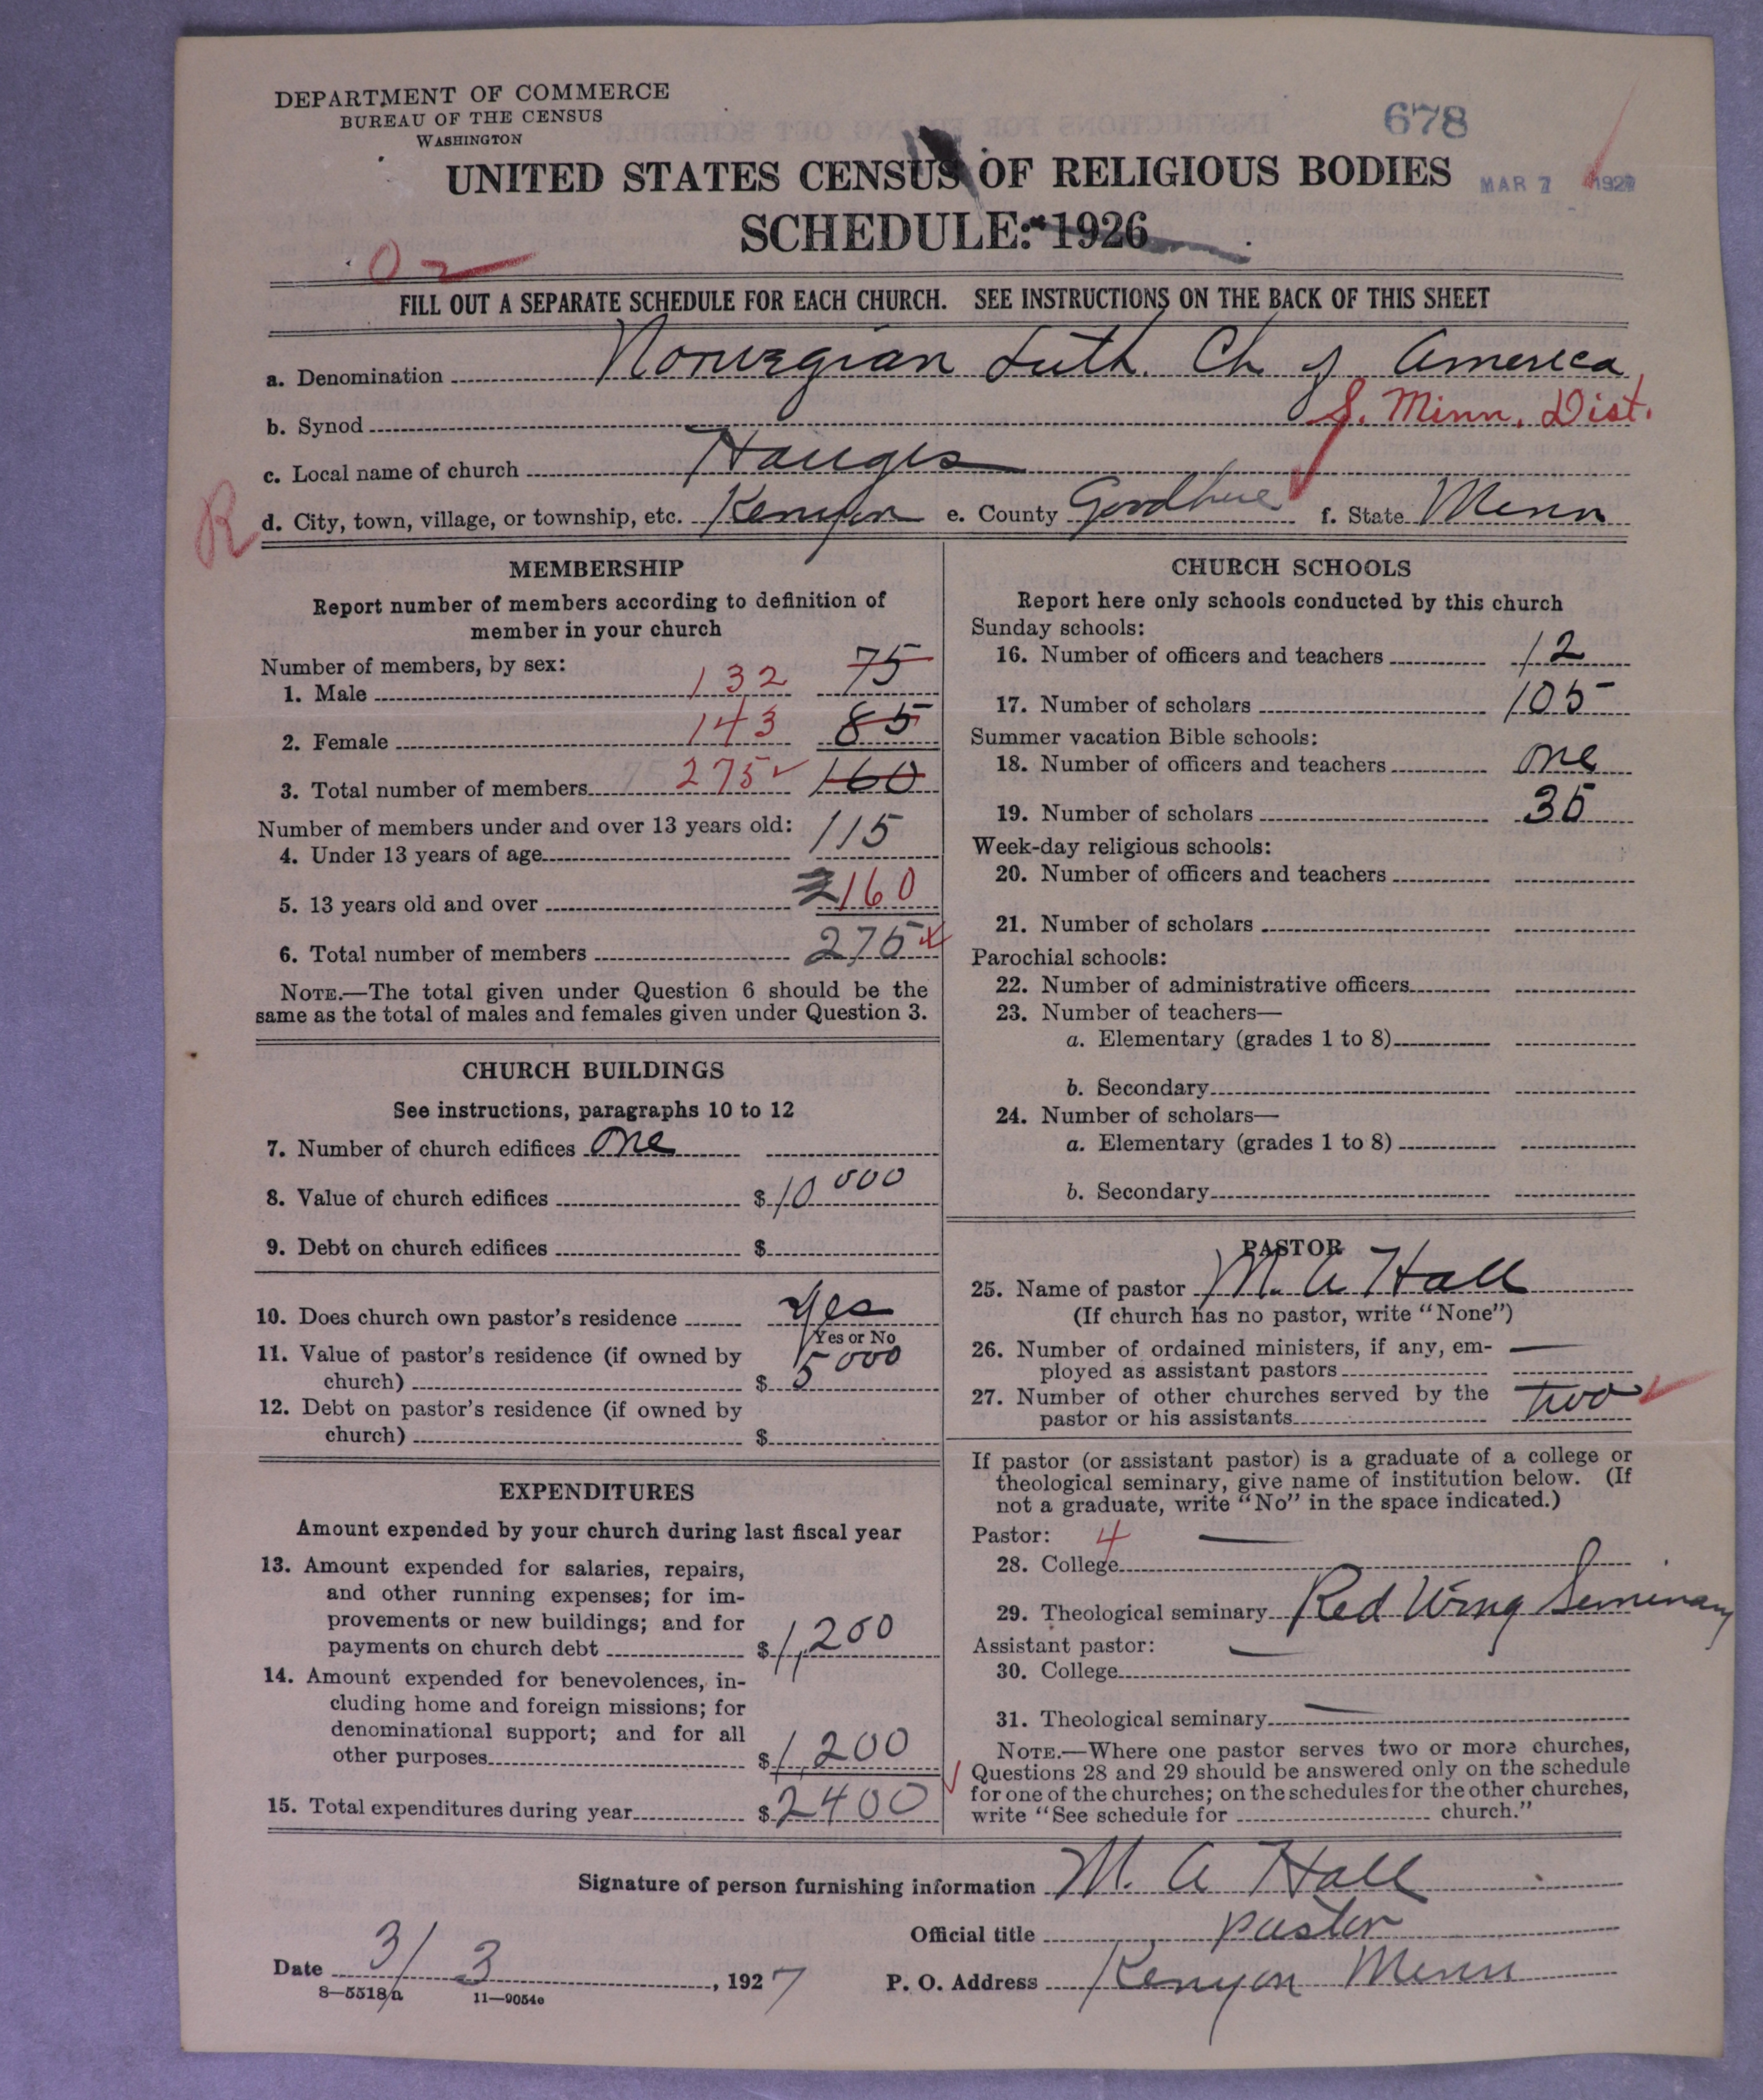 DEPARTMENT OF COMMERCE
BUREAU OF THE CENSUS
WASHINGTON
678
UNITED STATES CENSUS OF RELIGIOUS BODIES
MAR 7 1927
SCHEDULE: 1926
02
FILL OUT A SEPARATE SCHEDULE FOR EACH CHURCH. SEE INSTRUCTIONS ON THE BACK OF THIS SHEET
a. Denomination Norwegian Luth. Ch of America
b. Synod S. Minn. Dist.
c. Local name of church Hauges
R
d. City, town, village, or township, etc. Kenyon e. County Goodhue f. State Minn
MEMBERSHIP
Report number of members according to definition of
member in your church
Number of members, by sex:
1. Male 132 75
2. Female 143 85
3. Total number of members 275 160
Number of members under and over 13 years old:
4. Under 13 years of age 115
5. 13 years old and over 160
6. Total number of members 275
NOTE.—The total given under Question 6 should be the
same as the total of males and females given under Question 3.
CHURCH BUILDINGS
See instructions, paragraphs 10 to 12
7. Number of church edifices One
8. Value of church edifices $10000
9. Debt on church edifices $
10. Does church own pastor's residence Yes
Yes or No
11. Value of pastor's residence (if owned by
church) $5000
12. Debt on pastor's residence (if owned by
church) $
EXPENDITURES
Amount expended by your church during last fiscal year
13. Amount expended for salaries, repairs,
and other running expenses; for im-
provements or new buildings; and for
payments on church debt $1,200
14. Amount expended for benevolences, in-
cluding home and foreign missions; for
denominational support; and for all
other purposes $1,200
15. Total expenditures during year $2400
CHURCH SCHOOLS
Report here only schools conducted by this church
Sunday schools:
16. Number of officers and teachers 12
17. Number of scholars 105
Summer vacation Bible schools:
18. Number of officers and teachers One
19. Number of scholars 35
Week-day religious schools:
20. Number of officers and teachers
21. Number of scholars
Parochial schools:
22. Number of administrative officers
23. Number of teachers—
a. Elementary (grades 1 to 8)
b. Secondary
24. Number of scholars—
a. Elementary (grades 1 to 8)
b. Secondary
PASTOR
25. Name of pastor M. A Hall
(If church has no pastor, write "None")
26. Number of ordained ministers, if any, em-
ployed as assistant pastors —
27. Number of other churches served by the
pastor or his assistants two
If pastor (or assistant pastor) is a graduate of a college or
theological seminary, give name of institution below. (If
not a graduate, write "No" in the space indicated.)
Pastor: 4 —
28. College
29. Theological seminary Red Wing Seminary
Assistant pastor: —
30. College
31. Theological seminary —
NOTE.—Where one pastor serves two or more churches,
Questions 28 and 29 should be answered only on the schedule
for one of the churches; on the schedules for the other churches,
write "See schedule for church."
Signature of person furnishing information M. A Hall
Official title pastor
Date 3/3, 1927 P. O. Address Kenyon Minn
8—5518a 11—9054e